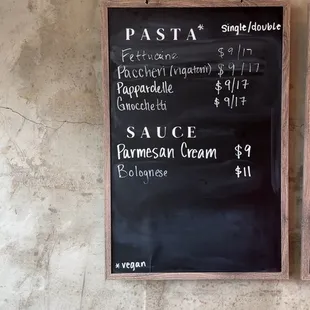 PASTA* Single/double
Fettucine $9/17
Paccheri (rigatoni) $9/17
Pappardelle $9/17
Gnocchetti $9/17
SAUCE
Parmesan Cream $9
Bolognese $11
*vegan